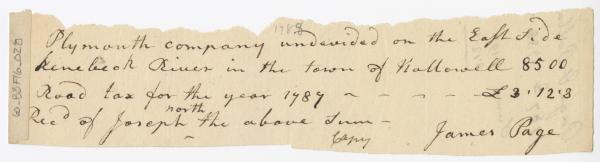 1788
Plymouth company undevided on the East Side
Kenebeck River in the town of Hallowell 8500
Road tax for the year 1787 ~ - - - £3.12.3
north
Recd of Joseph the above Sum -
Copy James Page